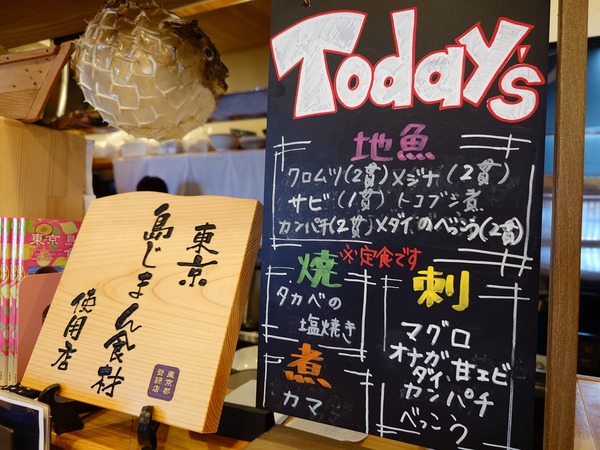 Today's
地魚
クロムツ(2貫)メジナ(2貫)
サビ(1貫)トコブシ煮
カンパチ(2貫)メダイのべっこう(2貫)
※定食です
焼
タカベの
塩焼き
煮
カマ
刺
マグロ
オナガ 甘エビ
ダイ、
カンパチ
べっこう
東京
島じまん食材
使用店
東京都
登録店
東京島